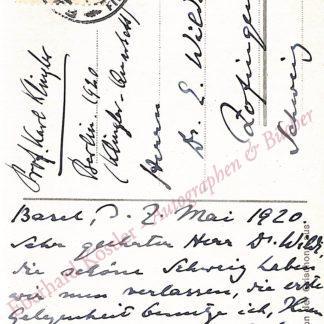 Prof. Karl Klingler
Berlin 1920
(Klingler-Quartett)
Herrn
Dr. E. Wild
Zofingen
Schweiz
Basel, d. 2. Mai 1920.
Sehr geehrter Herr Dr. Wild,
die schöne Schweiz haben
wir nun verlassen, die erste
Gelegenheit benutze ich, Ihnen
Eberhard Köstler Autographen & Bücher